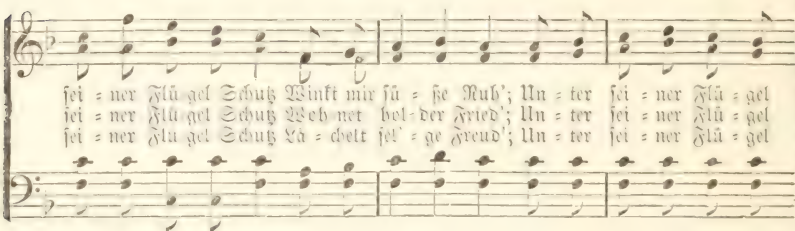 sei = ner Flü = gel Schutz Winkt mir sü = ße Ruh'; Un = ter sei = ner Flü = gel
sei = ner Flü = gel Schutz Woh = net hol = der Fried'; Un = ter sei = ner Flü = gel
sei = ner Flü = gel Schutz Lä = chelt sel' = ge Freud'; Un = ter sei = ner Flü = gel